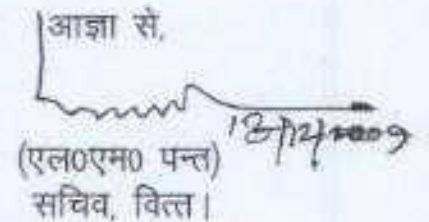 आज्ञा से,
(एल0एम0 पन्त)
सचिव, वित्त।